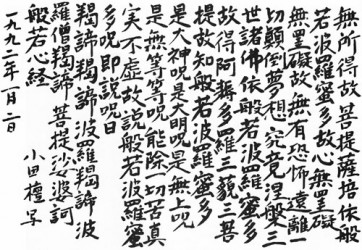 無所得故菩提薩埵依般
若波羅蜜多故心無罣礙
無罣礙故無有恐怖遠離一
切顛倒夢想究竟涅槃三
世諸佛依般若波羅蜜多
故得阿耨多羅三藐三菩
提故知般若波羅蜜多
是大神呪是大明呪是無上呪
是無等等呪能除一切苦真
実不虚故説般若波羅蜜
多呪即説呪曰
羯諦羯諦波羅羯諦波
羅僧羯諦菩提娑婆訶
般若心経
一九九二年一月二日
小田檀写